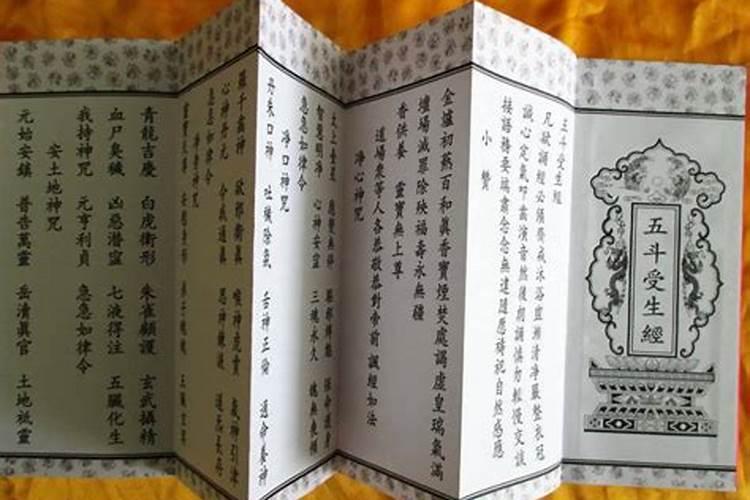 五斗受生經
五斗受生經
凡欲誦經必須齋戒沐浴盥漱清淨嚴整衣冠
誠心定氣叩齒演音然後朗誦慎勿輕慢交談
接語務要端肅念念無違隨應禱祀自然感應
小贊
金爐初熱百和真香寶煙焚處謁虛皇瑞氣滿
壇場滅罪除殃福壽永無疆
香供養 靈寶無上尊
道場眾等人各恭敬恭對帝前 誦經如法
淨心神咒
太上臺星 應變無停 驅邪縛魅 保命護身
智慧明淨 心神安寧 三魂永久 魄無喪傾
急急如律令
淨口神咒
丹朱口神 吐穢除氛 舌神正倫 通命養神
羅千齒神 卻邪衛真 喉神虎賁 氣神引津
心神丹元 令我通真 思神鍊液 道炁長存
急急如律令
淨身神咒
靈寶天尊 安慰身形 弟子魂魄 五臟玄冥
青龍吉慶 白虎衛形 朱雀顧護 玄武攝精
血尸臭穢 凶惡潛窒 七液得注 五臟化生
我持神咒 元亨利貞 急急如律令
安土地神咒
元始安鎮 普告萬靈 岳瀆真官 土地祗靈